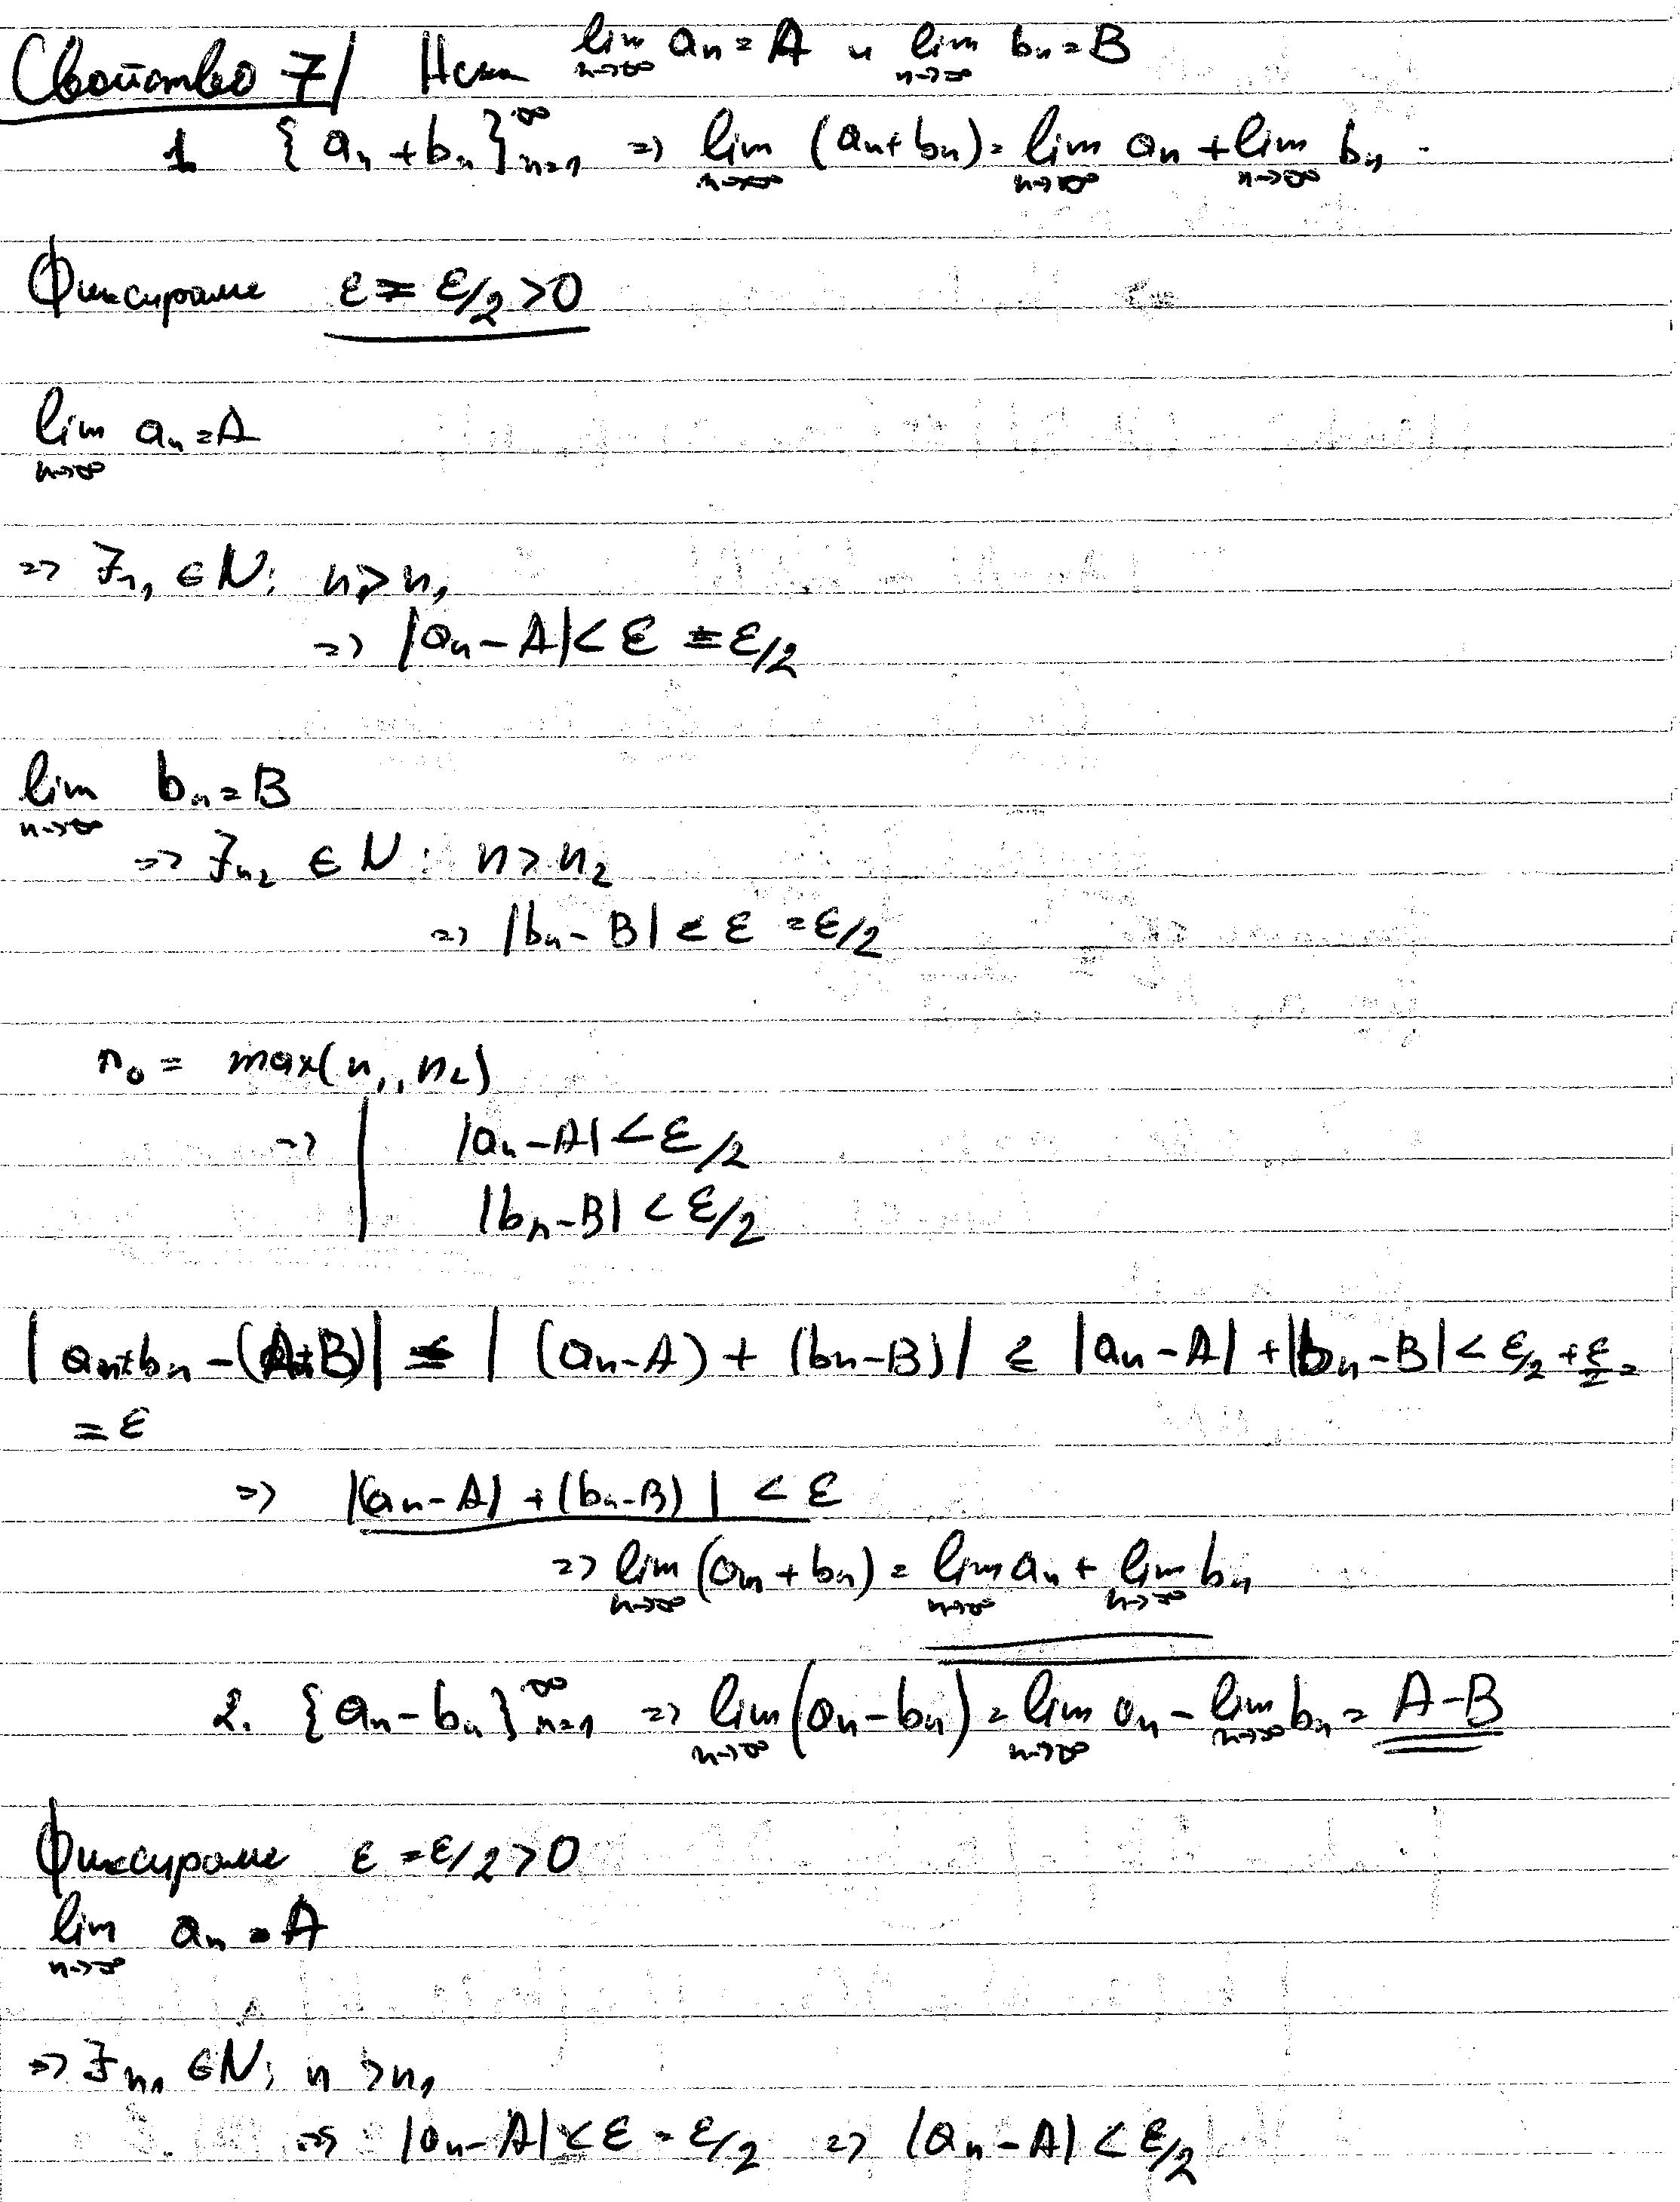 Свойство 7/ Нека lim n→∞ aₙ = A и lim n→∞ bₙ = B
1. {aₙ + bₙ}∞ n=1 => lim n→∞ (aₙ + bₙ) = lim n→∞ aₙ + lim n→∞ bₙ.
Фиксираме ε = ε/2 > 0
lim n→∞ aₙ = A
=> ∃n₁ ∈ N: n > n₁
=> |aₙ - A| < ε = ε/2
lim n→∞ bₙ = B
=> ∃n₂ ∈ N: n > n₂
=> |bₙ - B| < ε = ε/2
n₀ = max(n₁, n₂)
=> | |aₙ - A| < ε/2
|bₙ - B| < ε/2
|aₙ + bₙ - (A + B)| = |(aₙ - A) + (bₙ - B)| ≤ |aₙ - A| + |bₙ - B| < ε/2 + ε/2 =
= ε
=> |(aₙ - A) + (bₙ - B)| < ε
=> lim n→∞ (aₙ + bₙ) = lim n→∞ aₙ + lim n→∞ bₙ
2. {aₙ - bₙ}∞ n=1 => lim n→∞ (aₙ - bₙ) = lim n→∞ aₙ - lim n→∞ bₙ = A - B
Фиксираме ε = ε/2 > 0
lim n→∞ aₙ = A
=> ∃n₁ ∈ N: n > n₁
=> |aₙ - A| < ε = ε/2 => |aₙ - A| < ε/2